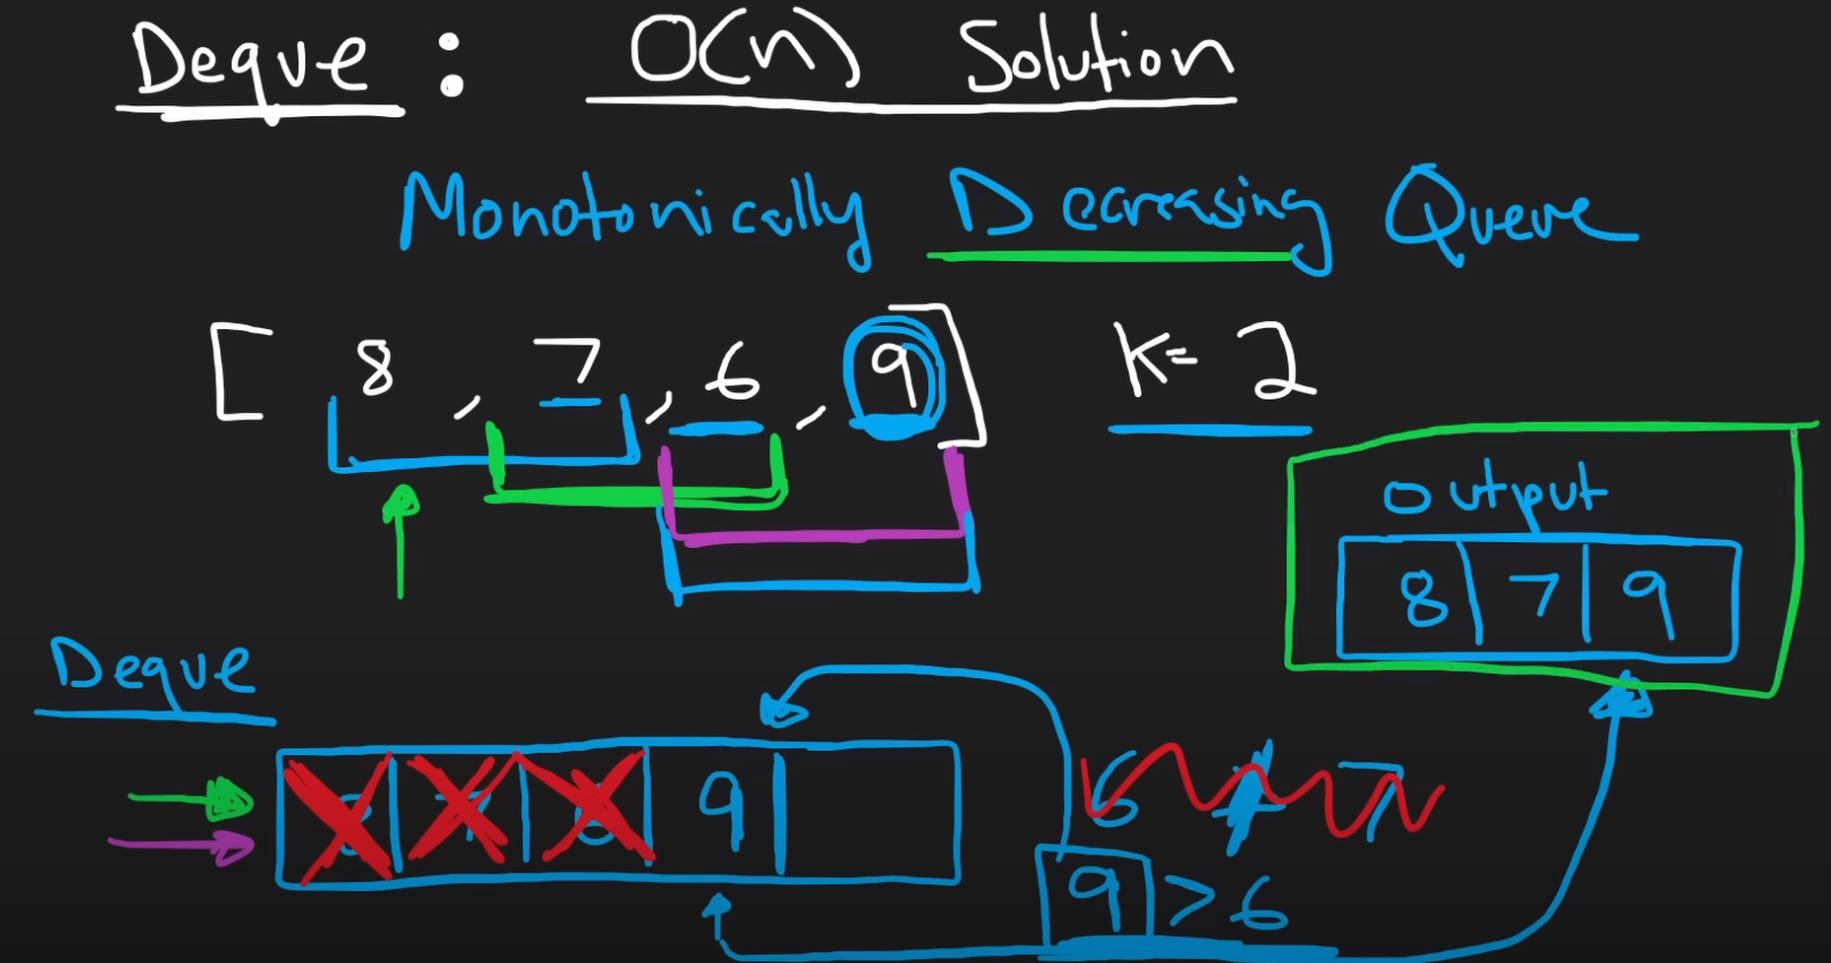 Deque : O(n) Solution
Monotonically Decreasing Queue
[ 8 , 7 , 6 , 9 ] K= 2
Output
8 7 9
Deque
8 7 6 9
6 + 7
9 > 6